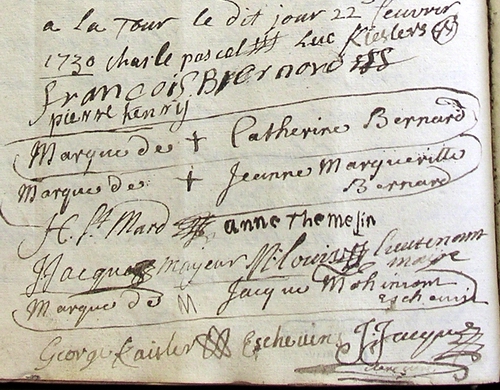 a la Tour le dit jour 22 feuvrier
1730 charle pascal Luc Kieslers
francois Bernord
pierre henry
Marque de + Catherine Bernard
Marque de + Jeanne Margueritte
Bernard
H. St. Mard anne Themelin
J Jacques mayeur N: Louis Lieutenant
mayre
Marque de M Jacque Mohimont
Eschevin
George Kaisler Eschevin J: Jacque